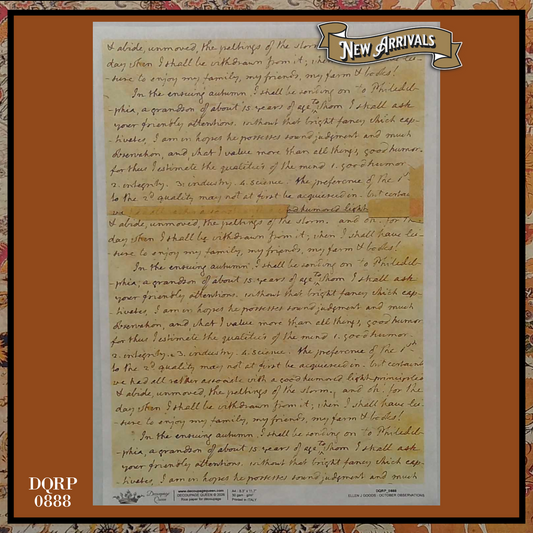 & abide, unmoved, the peltings of the storm
NEW ARRIVALS
day when I shall be withdrawn from it; when I shall have lei-
-sure to enjoy my family, my friends, my farm & books!
In the ensuing autumn, I shall be sending on to Philadel-
-phia, a grandson of about 15 years of age to whom I shall ask
your friendly attentions. without that bright fancy which cap-
-tivates, I am in hopes he possesses sound judgment and much
observation, and, what I value more than all things, good humor.
for thus I estimate the qualities of the mind 1. good humor.
2. integrity. 3. industry. 4. science. the preference of the 1st
to the 2d quality may not at first be acquiesced in. but certain
we
good humored light
& abide, unmoved, the peltings of the storm. and oh. for the
day when I shall be withdrawn from it; when I shall have lei-
-sure to enjoy my family, my friends, my farm & books!
In the ensuing autumn, I shall be sending on to Philadel-
-phia, a grandson of about 15 years of age to whom I shall ask
your friendly attentions. without that bright fancy which cap-
-tivates, I am in hopes he possesses sound judgment and much
observation, and, what I value more than all things, good humor
for thus I estimate the qualities of the mind 1. good humor.
2. integrity. 3. industry. 4. science. the preference of the 1st
to the 2d quality may not at first be acquiesced in. but certainl
we had all rather associate with a good humored light principled
& abide, unmoved, the peltings of the storm. and oh. for the
day when I shall be withdrawn from it; when I shall have lei-
-sure to enjoy my family, my friends, my farm & books!
In the ensuing autumn, I shall be sending on to Philadel-
-phia, a grandson of about 15 years of age to whom I shall ask
your friendly attentions. without that bright fancy which cap-
-tivates, I am in hopes he possesses sound judgment and much
DQRP
0888
Decoupage
Queen
www.decoupagequeen.com
DECOUPAGE QUEEN
Rice paper for decoupage
Printed in Italy
DQRP_0888
ELLEN J GOODE - OCTOBER OBSERVATIONS